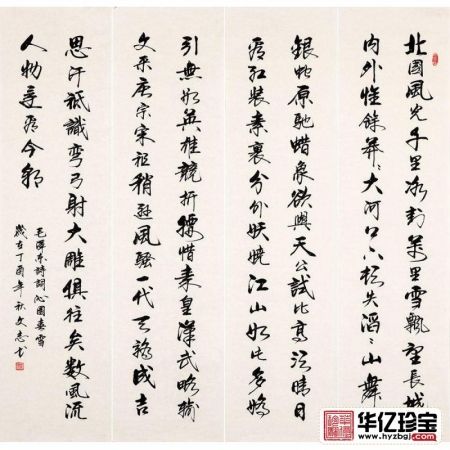 北國風光千里冰封萬里雪飄望長城
内外惟餘莽々大河上下頓失滔々山舞
銀蛇原馳蜡象欲與天公試比高須晴日
看紅裝素裹分外妖嬈江山如此多嬌
引無數英雄競折腰惜秦皇漢武略輸
文采唐宗宋祖稍遜風騷一代天驕成吉
思汗祗識彎弓射大雕俱往矣數風流
人物還看今朝
毛澤東詩詞沁園春雪
歲在丁酉年秋文志书
华亿珍宝
www.hyzbgj.com